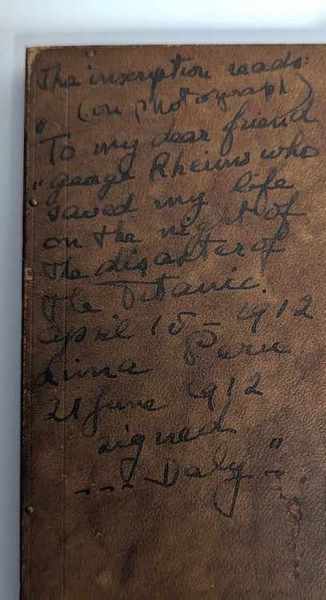 The inscription reads:
(on photograph)
"To my dear friend
"George Rheims who
saved my life
on the night of
the disaster of
the Titanic.
April 15 - 1912
Lima Peru
21 June 1912
signed
--- Daly"